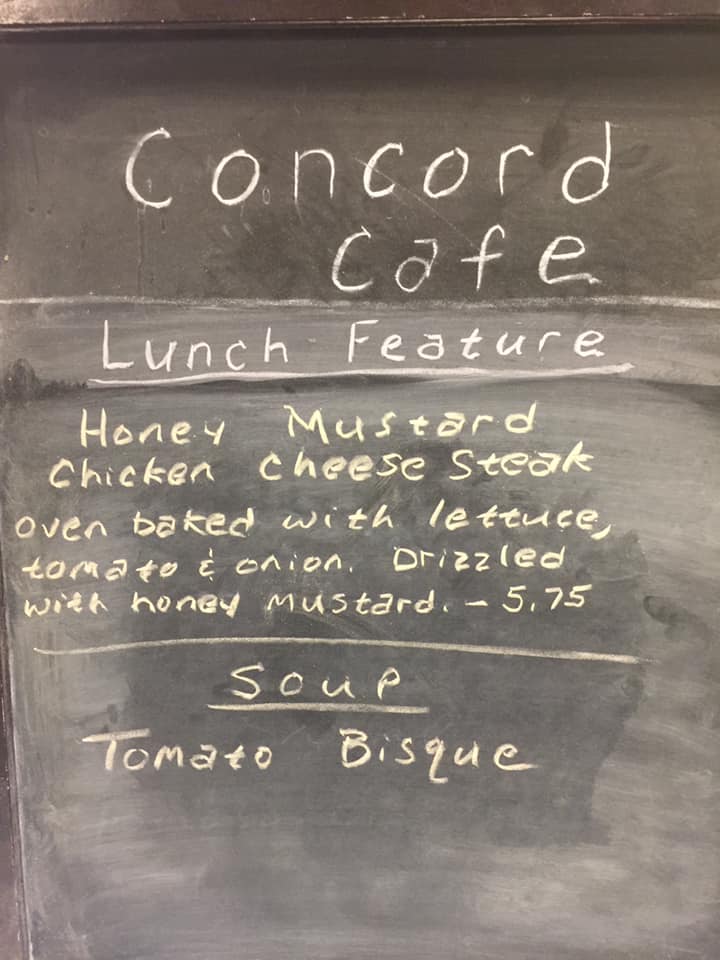 Concord
Cafe
Lunch Feature
Honey Mustard
Chicken Cheese Steak
oven baked with lettuce,
tomato & onion. Drizzled
with honey mustard. - 5.75
Soup
Tomato Bisque